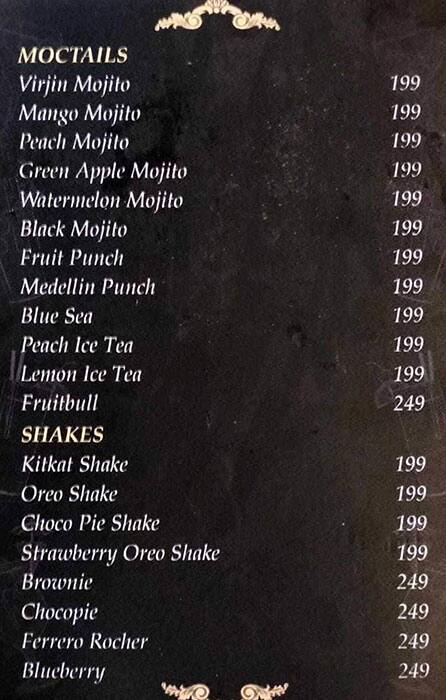 MOCTAILS
Virjin Mojito 199
Mango Mojito 199
Peach Mojito 199
Green Apple Mojito 199
Watermelon Mojito 199
Black Mojito 199
Fruit Punch 199
Medellin Punch 199
Blue Sea 199
Peach Ice Tea 199
Lemon Ice Tea 199
Fruitbull 249
SHAKES
Kitkat Shake 199
Oreo Shake 199
Choco Pie Shake 199
Strawberry Oreo Shake 199
Brownie 249
Chocopie 249
Ferrero Rocher 249
Blueberry 249